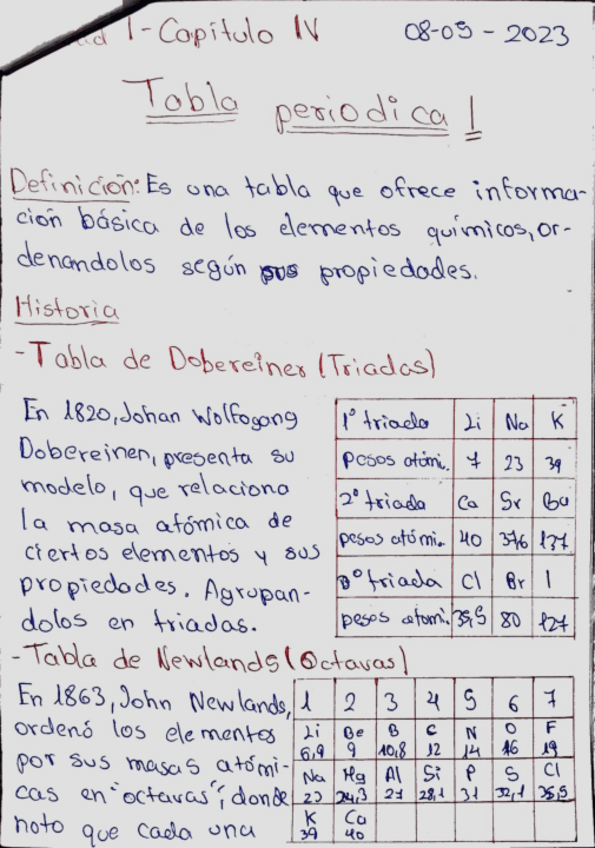 1 - Capítulo IV 08-05-2023
Tabla periodica I
Definición: Es una tabla que ofrece informa-
ción básica de los elementos químicos, or-
denandolos según sus propiedades.
Historia
- Tabla de Dobereiner (Triadas)
En 1820, Johan Wolfogang
Dobereinen, presenta su
modelo, que relaciona
la masa atómica de
ciertos elementos y sus
propiedades. Agrupan-
dolos en triadas.
1° triada Li Na K
Pesos atómi. 7 23 39
2° triada Ca Sr Ba
pesos atómi. 40 87,6 137
3° triada Cl Br I
pesos atomi. 35,5 80 127
- Tabla de Newlands (Octavas)
En 1863, John Newlands,
ordenó los elementos
por sus masas atómi-
cas en "octavas", donde
noto que cada una
1 2 3 4 5 6 7
Li Be B C N O F
6,9 9 10,8 12 14 16 19
Na Mg Al Si P S Cl
23 24,3 27 28,1 31 32,1 35,5
K Ca
39 40